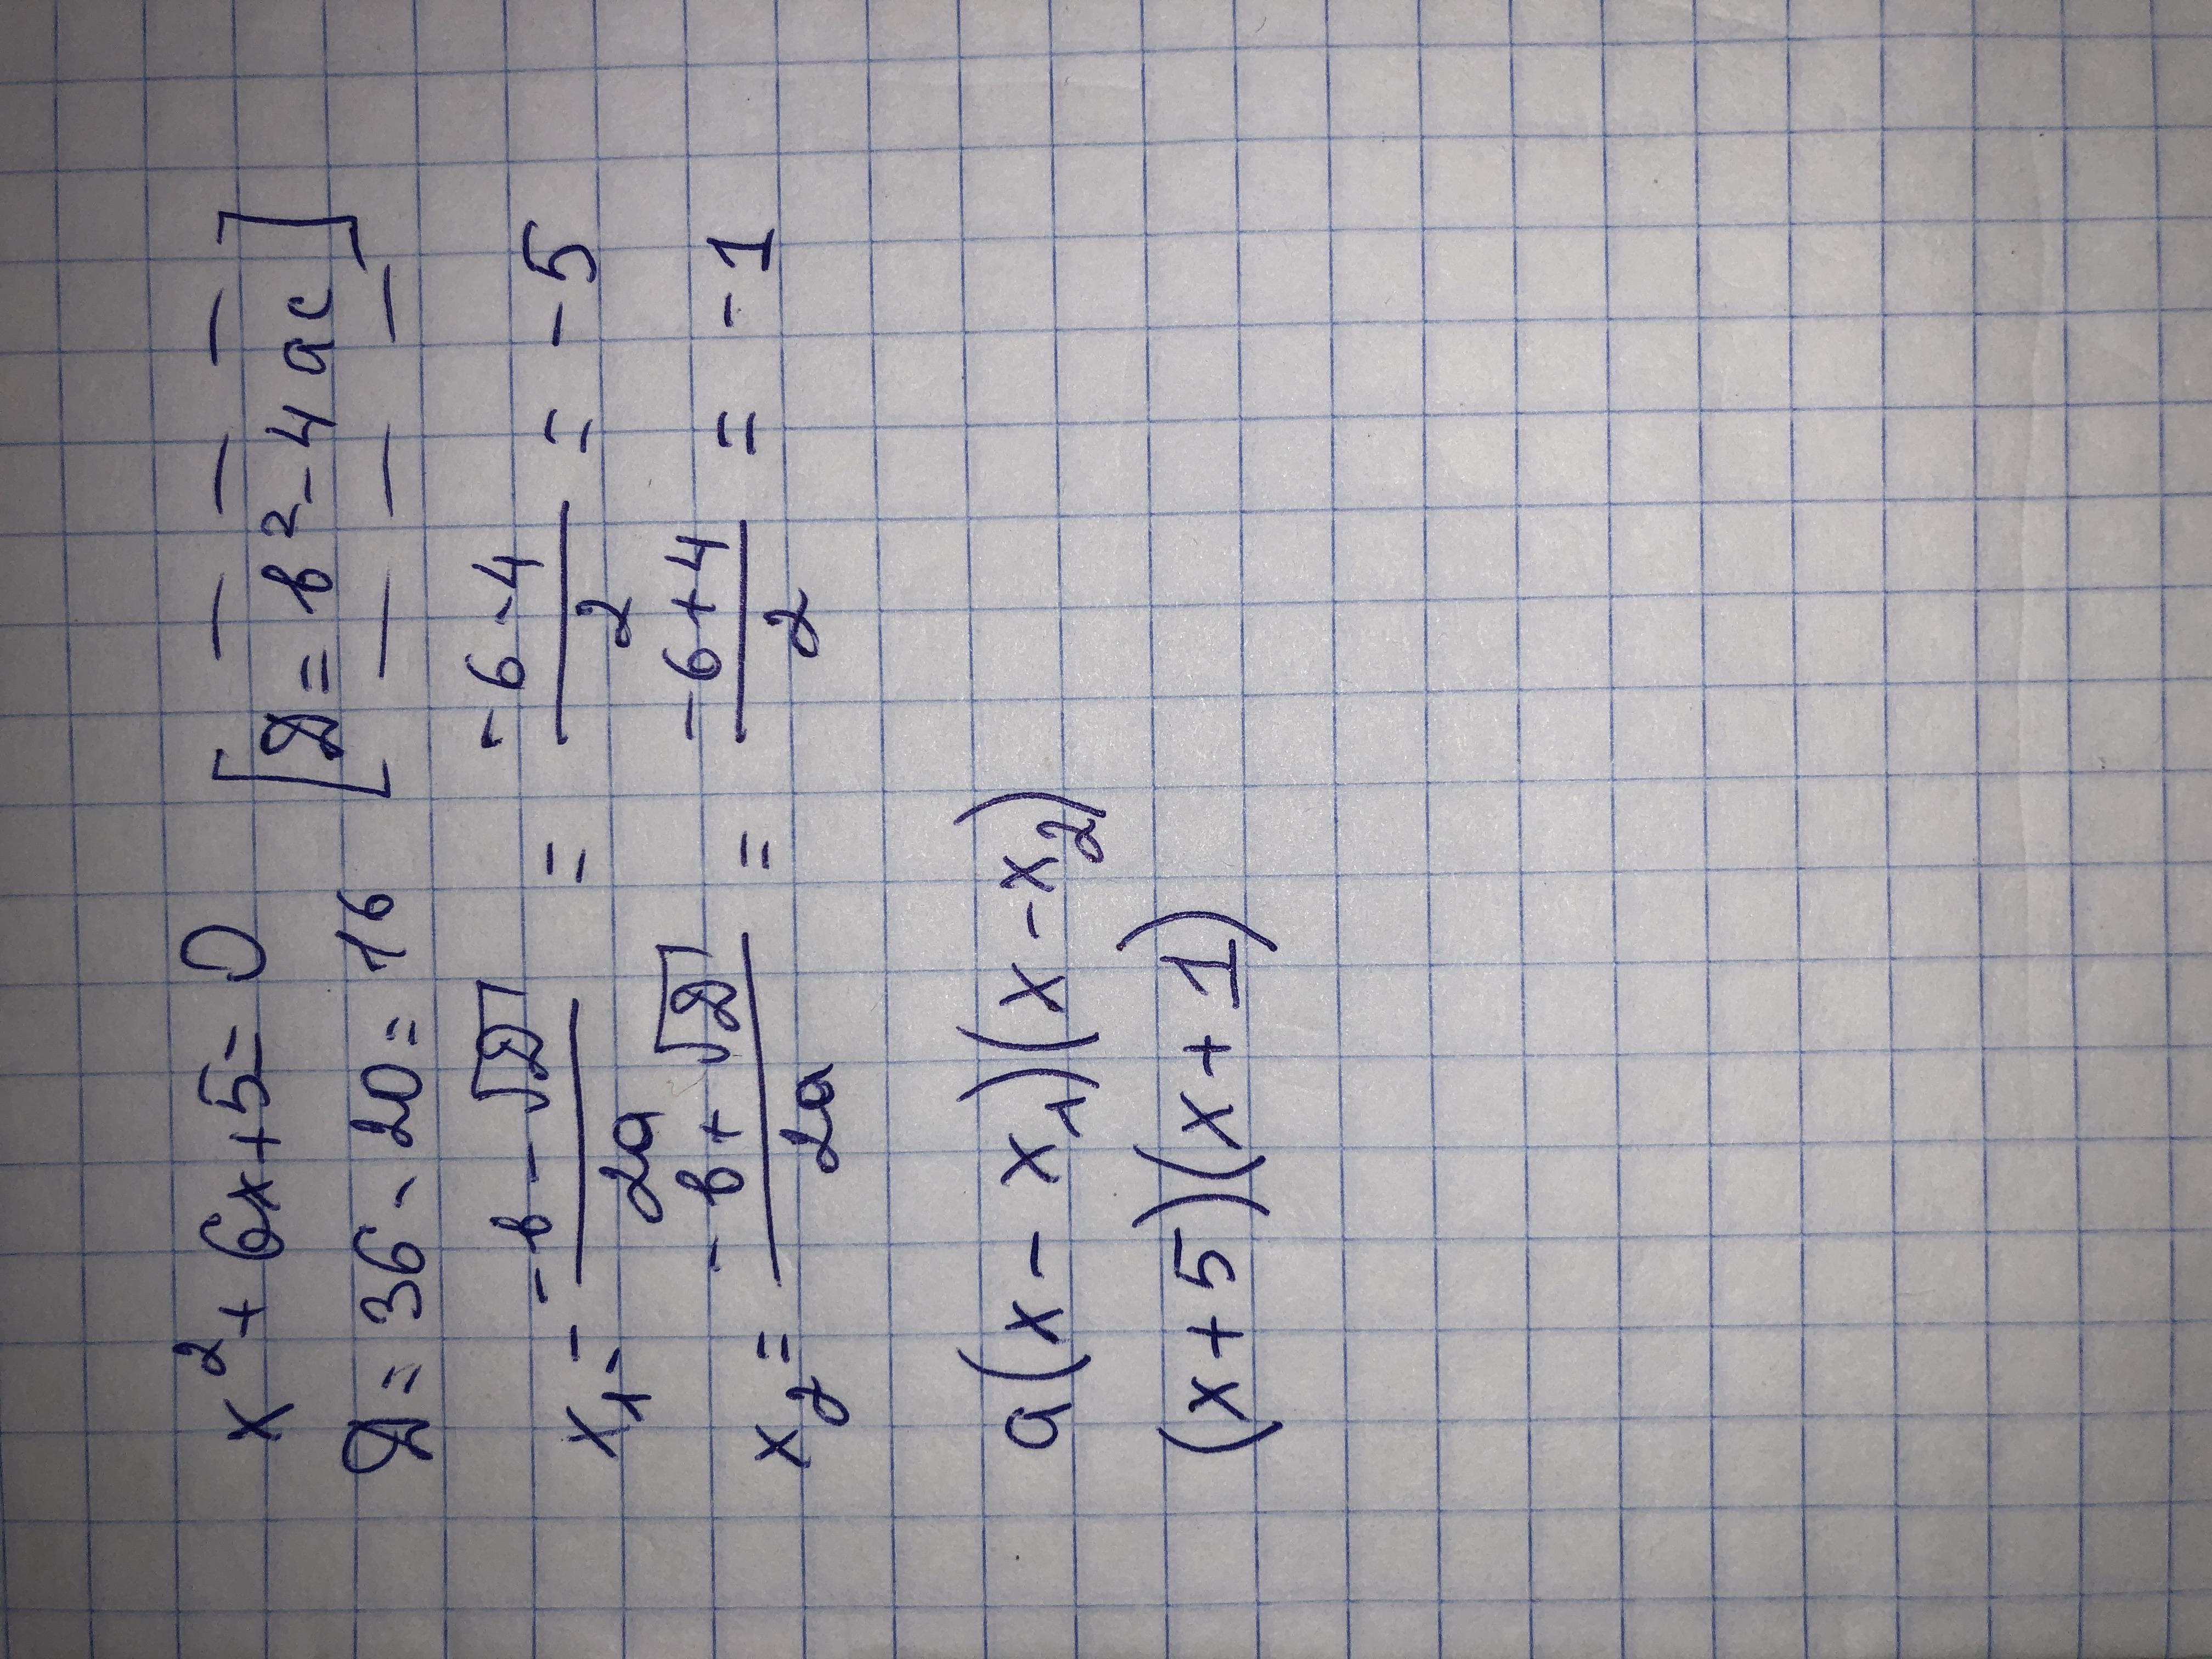 x² + 6x + 5 = 0
D = 36 - 20 = 16 [D = b² - 4ac]
x₁ = (-b - √D)/2a = (-6-4)/2 = -5
x₂ = (-b + √D)/2a = (-6+4)/2 = -1
a(x - x₁)(x - x₂)
(x + 5)(x + 1)